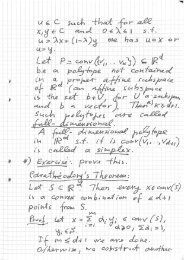 u ∈ C such that for all
x, y ∈ C and 0 ≤ λ ≤ 1 s.t.
u = λx + (1-λ)y one has u = x or
u = y.
Let P = conv(v₁, ..., vₙ) ⊆ ℝᵈ
be a polytope not contained
in a proper affine subspace
of ℝᵈ (an affine subspace
is the set b+U, for U a subspace
and b a vector). Then
Such polytopes are called
full-dimensional.
A full-dimensional polytope
in ℝᵈ s.t. it is conv(v₁, ..., v_{d+1})
is called a simplex.
*) Exercise: prove this.
Carathéodory's Theorem:
Let S ⊆ ℝᵈ. Then every x ∈ conv(S)
is a convex combination of ≤ d+1
points from S.
Proof. Let x = Σ αᵢ yᵢ ∈ conv(S),
αᵢ ≥ 0, Σ αᵢ = 1,
If m ≤ d+1 we are done.
Otherwise, we construct another